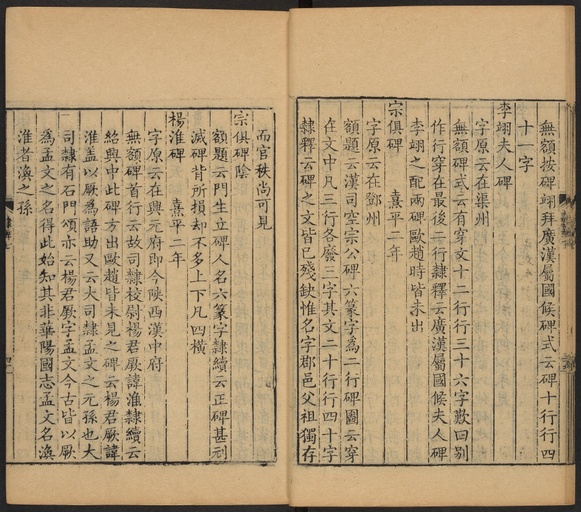 無額按碑翊拜廣漢屬國候碑式云碑十行行四
十一字
李翊夫人碑
字原云在渠州
無額碑式云有穿文十二行行三十六字歎曰别
作行穿在最後二行隸釋云廣漢屬國候夫人碑
李翊之配兩碑歐趙時皆未出
宗俱碑　熹平二年
字原云在鄧州
額題云漢司空宗公碑六篆字為二行碑圖云穿
在文中凡三行各廢三字其文二十行行四十字
隸釋云碑之文皆已殘缺惟名字郡邑父祖獨存
而官秩尚可見
宗俱碑陰
額題云門生立碑人名六篆字隸續云正碑甚刓
滅碑背所損却不多上下凡四橫
楊淮碑　熹平二年
字原云在興元府即今陜西漢中府
無額碑首行云故司隸校尉楊君厥諱淮隸續云
紹興中此碑方出歐趙皆未見之碑云楊君厥諱
淮盖以厥為語助又云大司隸孟文之元孫也大
司隸有石門頌亦云楊君厥字孟文今古皆以厥
為孟文之名得此始知其非華陽國志孟文名渙
淮者渙之孫